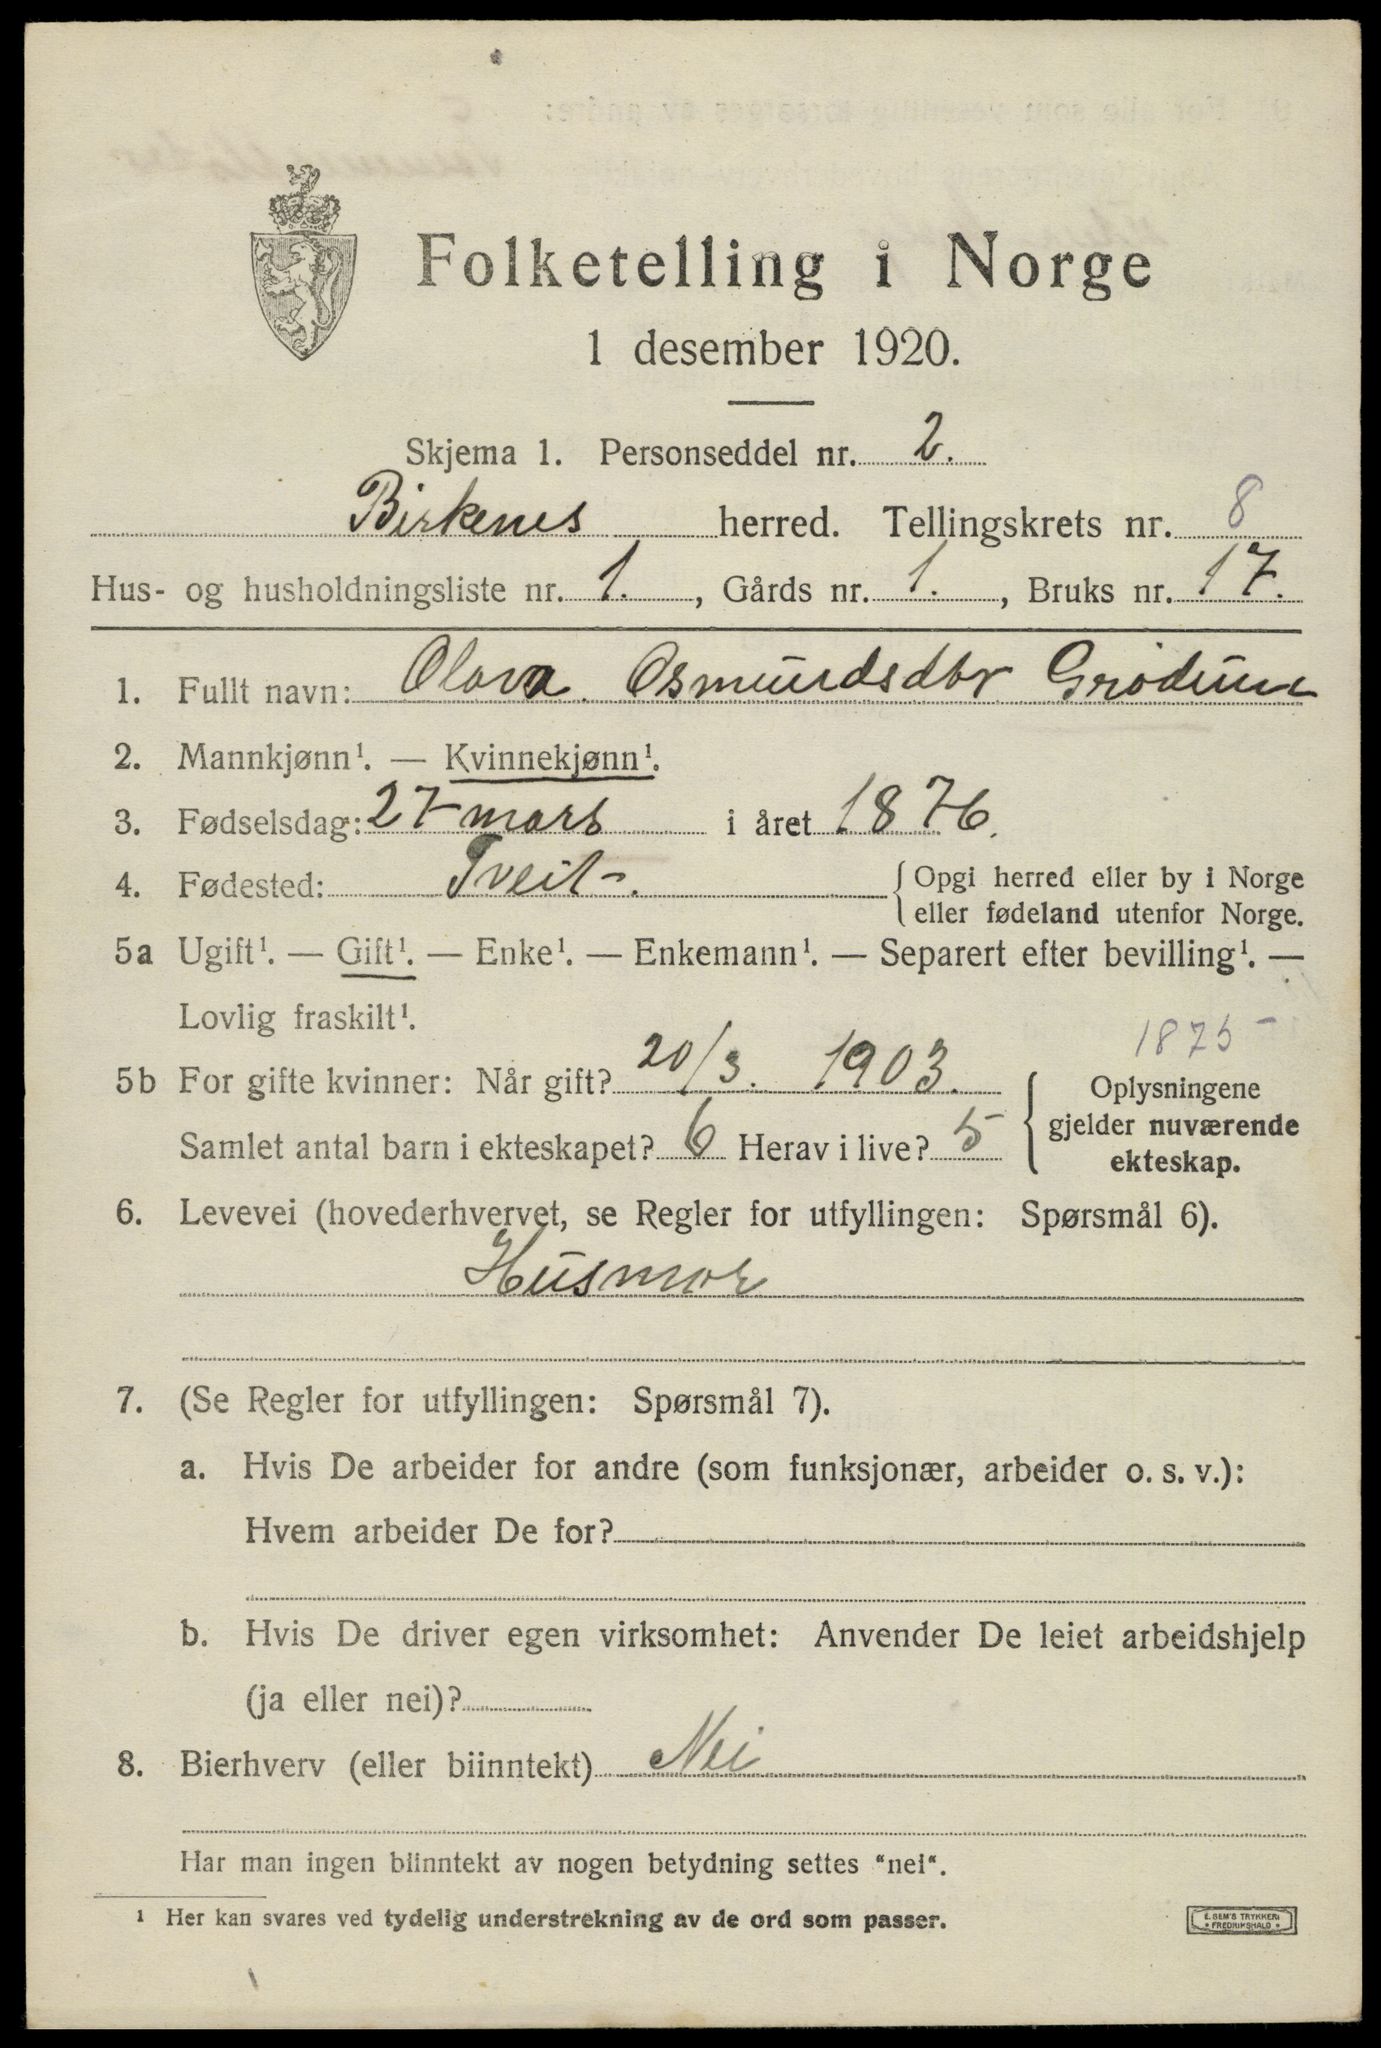 Folketelling i Norge
1 desember 1920.
Skjema 1. Personseddel nr. 2.
Birkenes herred. Tellingskrets nr. 8
Hus- og husholdningsliste nr. 1., Gårds nr. 1., Bruks nr. 17.
1. Fullt navn: Olava Osmundsdtr
2. Mannkjønn¹. — Kvinnekjønn¹.
3. Fødselsdag: 27 mars i året 1876.
4. Fødested: Tveit. {Opgi herred eller by i Norge
eller fødeland utenfor Norge.
5a Ugift¹. — Gift¹. — Enke¹. — Enkemann¹. — Separert efter bevilling¹. —
Lovlig fraskilt¹.
1875
5b For gifte kvinner: Når gift? 20/3. 1903. Oplysningene
gjelder nuværende
Samlet antal barn i ekteskapet? 6 Herav i live? 5 ekteskap.
6. Levevei (hovederhvervet, se Regler for utfyllingen: Spørsmål 6).
Husmor
7. (Se Regler for utfyllingen: Spørsmål 7).
a. Hvis De arbeider for andre (som funksjonær, arbeider o. s. v.):
Hvem arbeider De for?
b. Hvis De driver egen virksomhet: Anvender De leiet arbeidshjelp
(ja eller nei)?
8. Bierhverv (eller biinntekt) Nei
Har man ingen biinntekt av nogen betydning settes "nei".
¹ Her kan svares ved tydelig understrekning av de ord som passer.
E. SEM'S TRYKKERI
FREDRIKSHALD